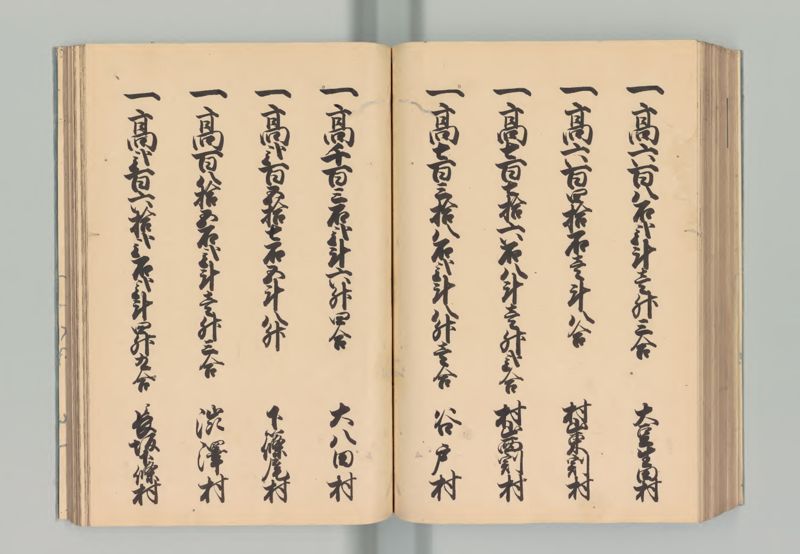 一高六百八石弐斗壱升三合 大豆生田村
一高六百四拾石壱斗八合 村山東割村
一高七百七拾六石八斗壱升弐合 村山西割村
一高七百三拾八石弐斗八升壱合 谷戸村
一高千百三石弐斗六升四合 大八田村
一高弐百五拾七石五斗八升 下篠尾村
一高百八拾五石弐斗壱升三合 渋澤村
一高弐百六拾弐石弐斗四升五合 長坂條村